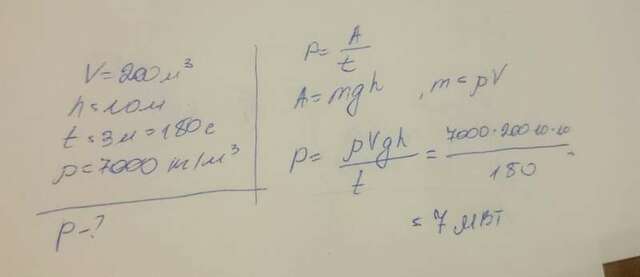 V=200м³
h=10м
t=3м=180с
ρ=7000 кг/м³
P-?
P=A/t
A=mgh, m=ρV
P=ρVgh/t=7000·200·10·10/180=
=7 МВт